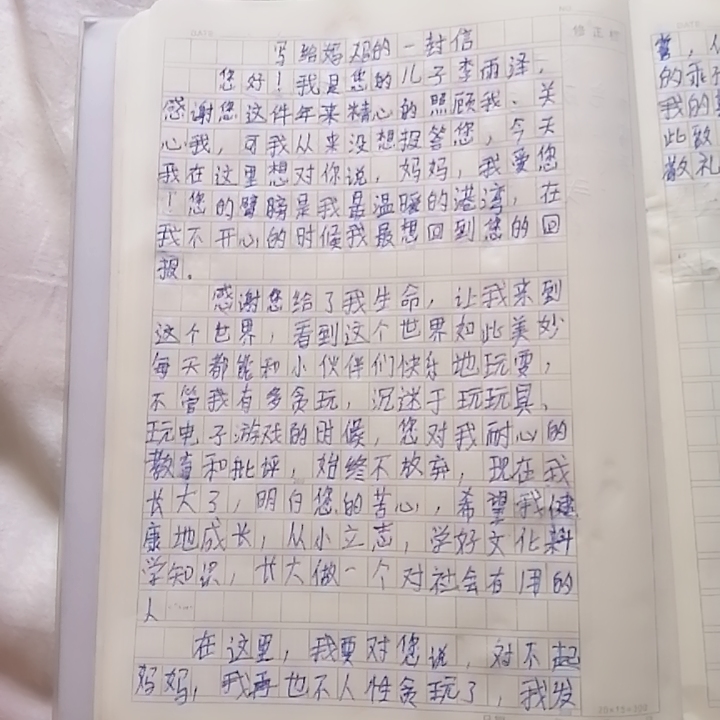 写给妈妈的一封信
您好！我是您的儿子李雨泽，
感谢您这件年来精心的照顾我、关
心我，可我从来没想报答您，今天
我在这里想对你说，妈妈，我爱您
！您的臂膀是我最温暖的港湾，在
我不开心的时候我最想回到您的回
报．
感谢您给了我生命，让我来到
这个世界，看到这个世界如此美妙
每天都能和小伙伴们快乐地玩耍，
不管我有多贪玩，沉迷于玩玩具、
玩电子游戏的时候，您对我耐心的
教育和批评，始终不放弃，现在我
长大了，明白您的苦心，希望我健
康地成长，从小立志，学好文化科
学知识，长大做一个对社会有用的
人
在这里，我要对您说，对不起
妈妈，我再也不人性贪玩了，我发
的乖
我的
此致
敬礼